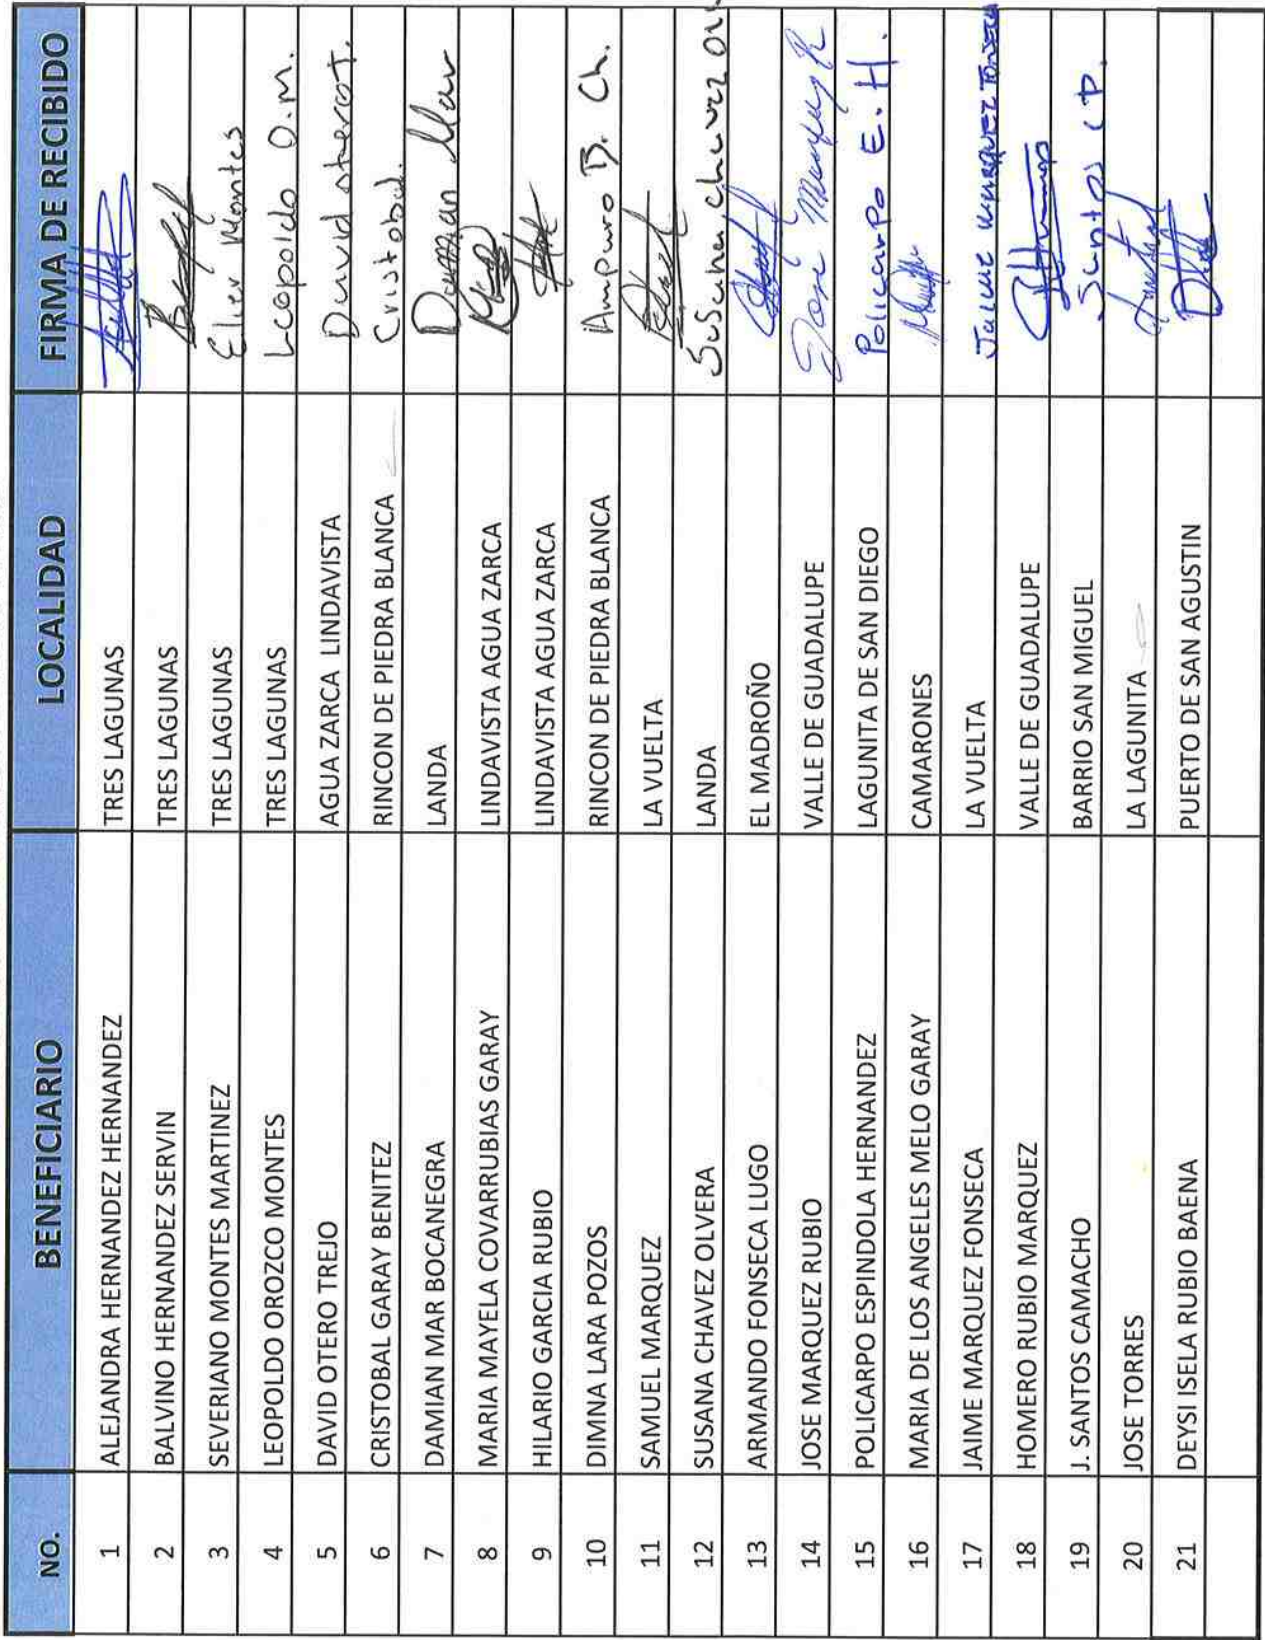 NO. BENEFICIARIO LOCALIDAD FIRMA DE RECIBIDO
1 ALEJANDRA HERNANDEZ HERNANDEZ TRES LAGUNAS
2 BALVINO HERNANDEZ SERVIN TRES LAGUNAS
3 SEVERIANO MONTES MARTINEZ TRES LAGUNAS Eliver Montes
4 LEOPOLDO OROZCO MONTES TRES LAGUNAS Leopoldo O.M.
5 DAVID OTERO TREJO AGUA ZARCA LINDAVISTA David oteroT.
6 CRISTOBAL GARAY BENITEZ RINCON DE PIEDRA BLANCA Cristobal.
7 DAMIAN MAR BOCANEGRA LANDA Damian Mar
8 MARIA MAYELA COVARRUBIAS GARAY LINDAVISTA AGUA ZARCA
9 HILARIO GARCIA RUBIO LINDAVISTA AGUA ZARCA
10 DIMNA LARA POZOS RINCON DE PIEDRA BLANCA Amparo B. Ch.
11 SAMUEL MARQUEZ LA VUELTA
12 SUSANA CHAVEZ OLVERA LANDA Susana chavez
13 ARMANDO FONSECA LUGO EL MADROÑO
14 JOSE MARQUEZ RUBIO VALLE DE GUADALUPE José
15 POLICARPO ESPINDOLA HERNANDEZ LAGUNITA DE SAN DIEGO Policarpo E.H.
16 MARIA DE LOS ANGELES MELO GARAY CAMARONES
17 JAIME MARQUEZ FONSECA LA VUELTA Jaime
18 HOMERO RUBIO MARQUEZ VALLE DE GUADALUPE
19 J. SANTOS CAMACHO BARRIO SAN MIGUEL Santos C P.
20 JOSE TORRES LA LAGUNITA
21 DEYSI ISELA RUBIO BAENA PUERTO DE SAN AGUSTIN